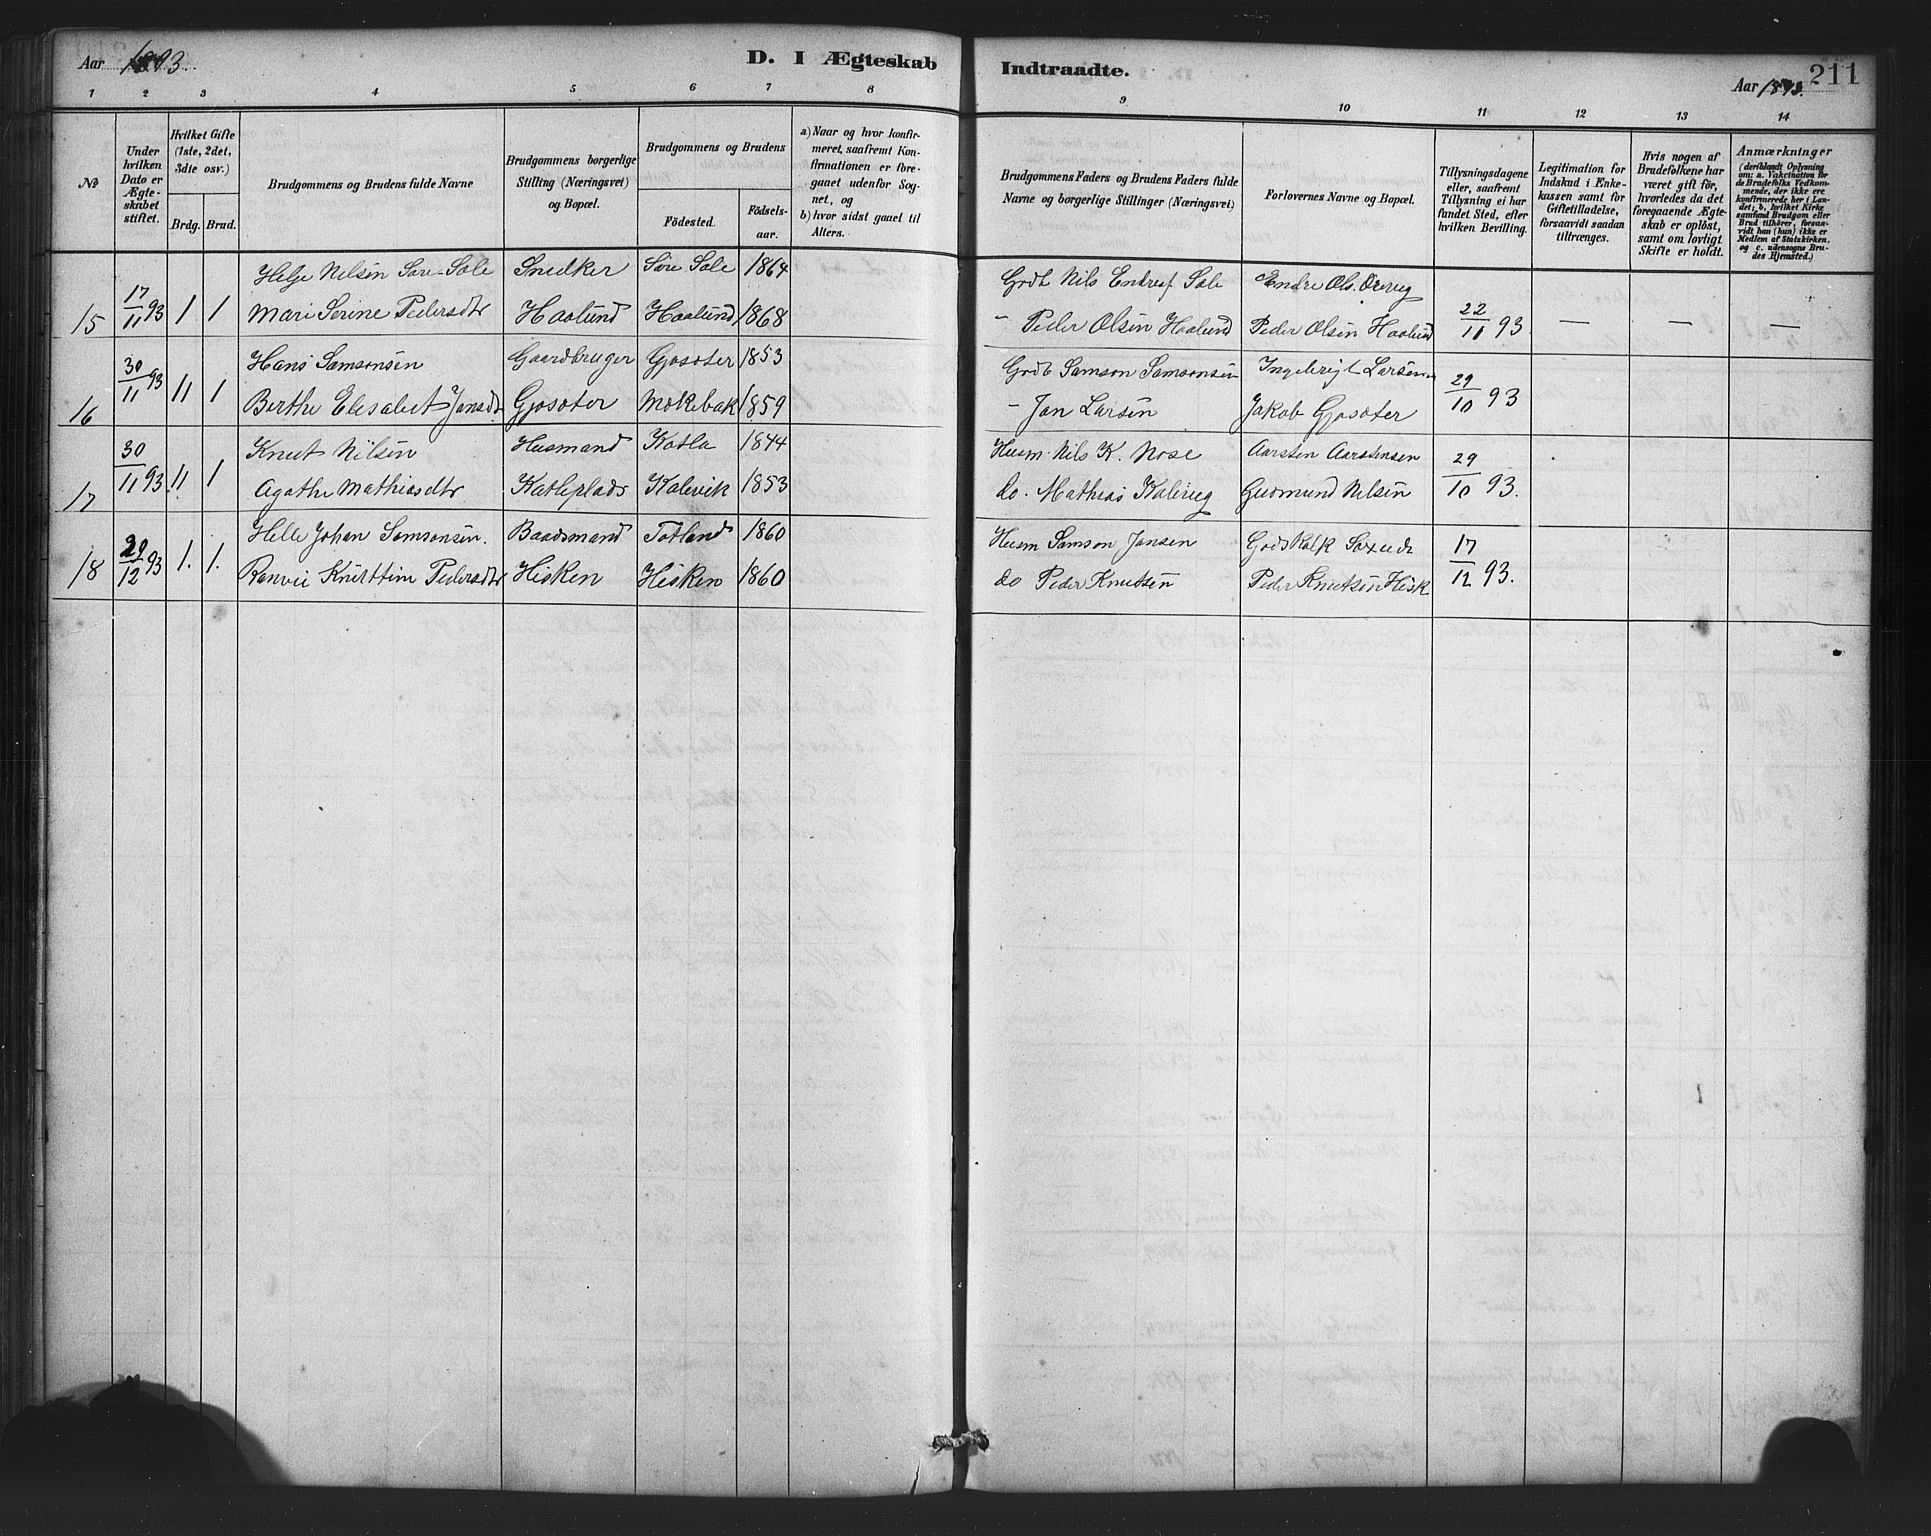 Aar 1893.
D. I Ægteskab
Indtraadte.
Aar 1893.
211
1 2 3 4 5 6 7 8 9 10 11 12 13 14
№
Under
hvilken
Dato er
Ægte-
skabet
stiftet.
Hvilket Gifte
(1ste, 2det,
3dte osv.)
Brdg. Brud.
Brudgommens og Brudens fulde Navne
Brudgommens borgerlige
Stilling (Næringsvei)
og Bopæl.
Brudgommens og Brudens
Födested.
Födsels-
aar.
a) Naar og hvor konfir-
meret, saafremt Kon-
firmationen er fore-
gaaet udenfor Sog-
net, og
b) hvor sidst gaaet til
Alters.
Brudgommens Faders og Brudens Faders fulde
Navne og borgerlige Stillinger (Næringsvei)
Forlovernes Navne og Bopæl.
Tillysningsdagene
eller, saafremt
Tillysning ei har
fundet Sted, efter
hvilken Bevilling.
Legitimation for
Indskud i Enke-
kassen samt for
Giftetilladelse,
forsaavidt saadan
tiltrænges.
Hvis nogen af
Brudefolkene har
været gift för,
hvorledes da det
foregaaende Ægte-
skab er oplöst,
samt om lovligt
Skifte er holdt.
Anmærkninger
(deriblandt Oplysning
om: a. Vakcination for
de Brudefolks Vedkom-
mende, der ikke ere
konfirmerede her i Lan-
det; b. hvilket Kirke
samfund Brudgom eller
Brud tilhörer, forsaa-
vidt han (hun) ikke er
Medlem af Statskirken,
og c. udensogns Bru-
des Hjemsted.)
Helje Nilsen Søre-Søle Snedker Søre Søle 1864 Grdb Nils Endres. Søle Endre Ols.
15 17/11 93 1 1 Mari Serine Pedersdtr Haalund Haalund 1868 - Peder Olsen Haalund Peder Olsen Haalund 22/11 93 — — —
Hans Samsonsen Gaardbruger Gjosøter 1853 Grdb Samson Samsonsen Ingebrigt Larsen
16 30/11 93 11 1 Berthe Elisabet Jansdtr Gjosøter Møkebak 1859 - Jan Larsen Jakob Gjosøter 29/10 93
Knut Nilsen Husmand Katla 1844 Husm. Nils K. Nose Aarsten Aarstensen
17 30/11 93 11 1 Agathe Mathiasdtr Katleplads Kalevik 1853 do. Mathias Gudmund Nilsen 29/10 93.
Helle Johan Samsonsen. Baadsmand Totland 1860 Husm Samson Jansen Godskalk
18 29/12 93 1. 1. Ranvei Pedersdtr Hisken Hisken 1860 do Peder Knutsen Peder Knutsen Hisk 17/12 93.